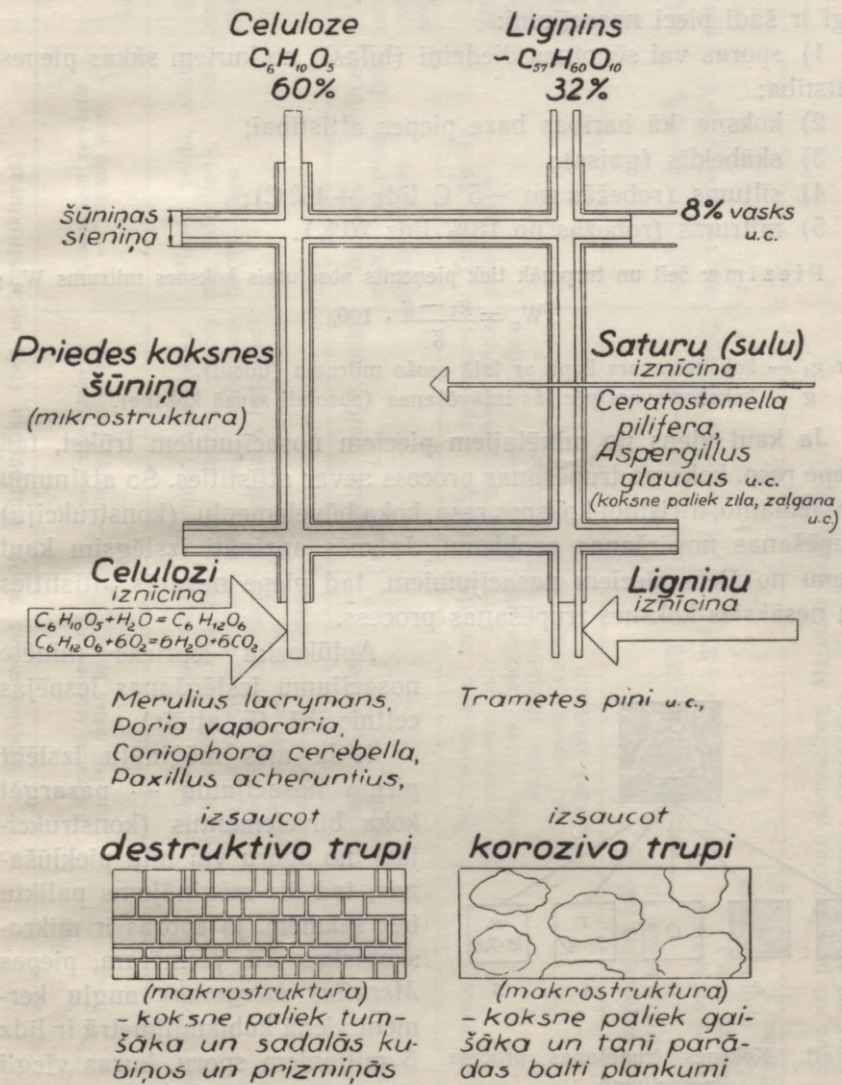 Celuloze
C₆H₁₀O₅
60%
Lignins
~ C₅₇H₆₀O₁₀
32%
šūniņas
sieniņa
8% vasks
u.c.
Priedes koksnes
šūniņa
(mikrostruktura)
Saturu (sulu)
iznīcina
Ceratostomella
pilifera,
Aspergillus
glaucus u.c.
(koksne paliek zila, zaļgana
u.c.)
Celulozi
iznīcina
C₆H₁₀O₅+H₂O=C₆H₁₂O₆
C₆H₁₂O₆+6O₂=6H₂O+6CO₂
Ligninu
iznīcina
Merulius lacrymans,
Poria vaporaria,
Coniophora cerebella,
Paxillus acheruntius,
Trametes pini u.c.,
izsaucot
destruktivo trupi
izsaucot
korozivo trupi
(makrostruktura)
- koksne paliek tum-
šāka un sadalās ku-
biņos un prizmiņās
(makrostruktura)
- koksne paliek gai-
šāka un tanī parā-
das balti plankumi